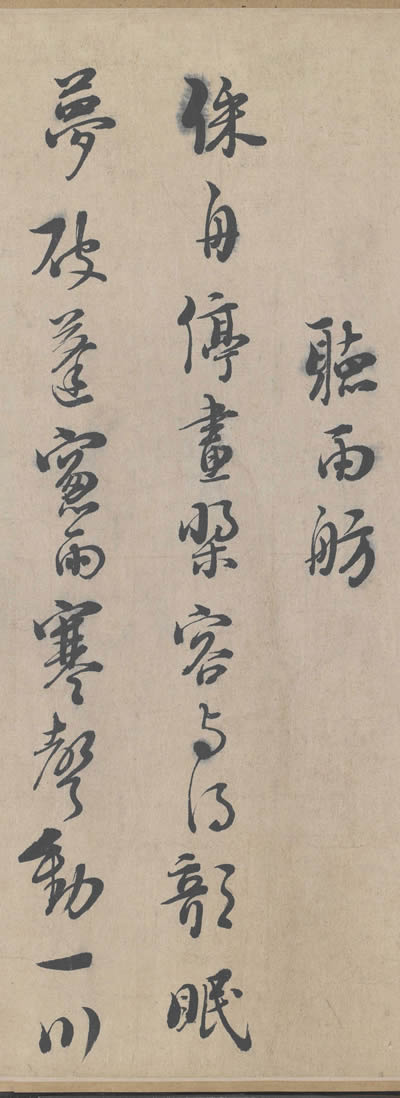 聽雨舫
綵舟停畫槳容與得欹眠
夢破蓬窻雨寒聲動一川